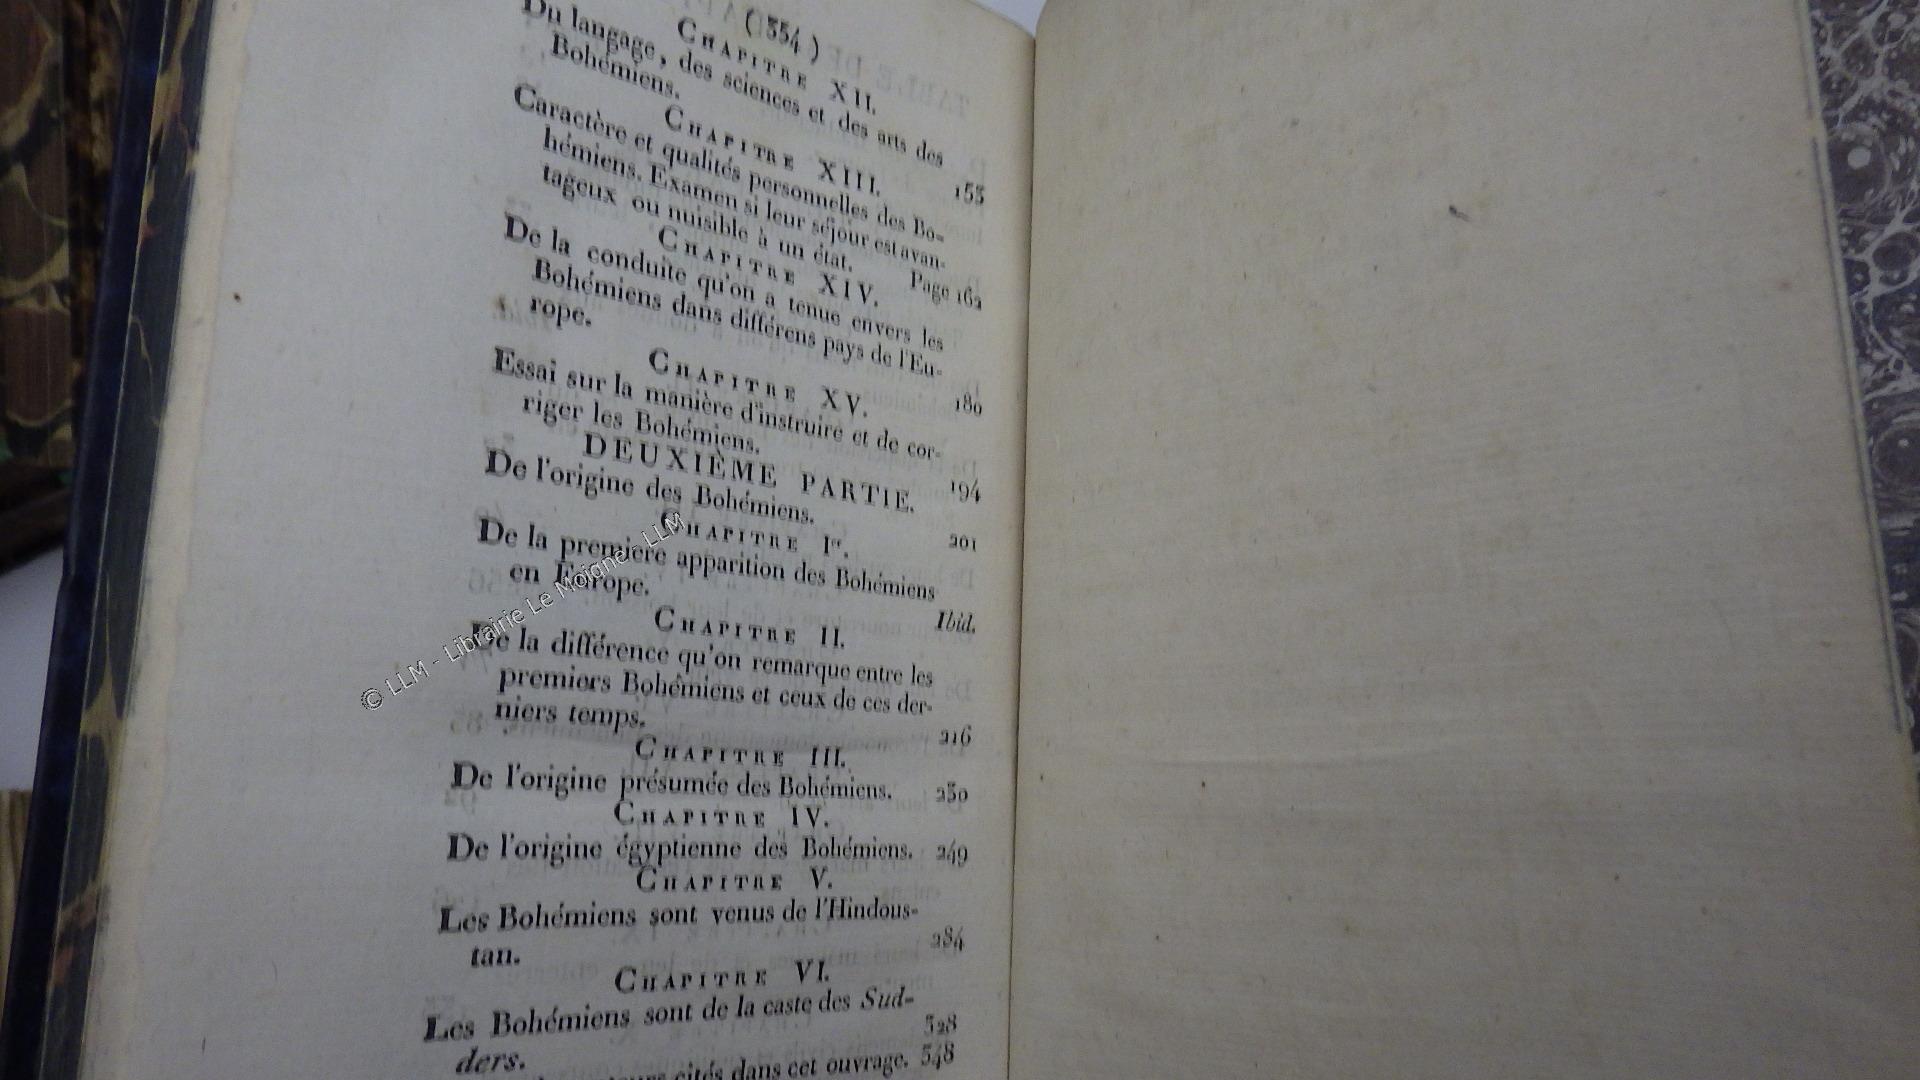 (354)
CHAPITRE XII.
Du langage, des sciences et des arts des
Bohémiens. 153
CHAPITRE XIII.
Caractère et qualités personnelles des Bo-
hémiens. Examen si leur séjour est avan-
tageux ou nuisible à un état. Page 162
CHAPITRE XIV.
De la conduite qu'on a tenue envers les
Bohémiens dans différens pays de l'Eu-
rope. 180
CHAPITRE XV.
Essai sur la manière d'instruire et de cor-
riger les Bohémiens. 194
DEUXIÈME PARTIE.
De l'origine des Bohémiens. 201
CHAPITRE Ier.
De la première apparition des Bohémiens
en Europe. Ibid.
CHAPITRE II.
De la différence qu'on remarque entre les
premiers Bohémiens et ceux de ces der-
niers temps. 216
CHAPITRE III.
De l'origine présumée des Bohémiens. 230
CHAPITRE IV.
De l'origine égyptienne des Bohémiens. 249
CHAPITRE V.
Les Bohémiens sont venus de l'Hindous-
tan. 284
CHAPITRE VI.
Les Bohémiens sont de la caste des Sud-
ders. 328
cités dans cet ouvrage. 348
© LLM - Librairie Le Moigne - LLM